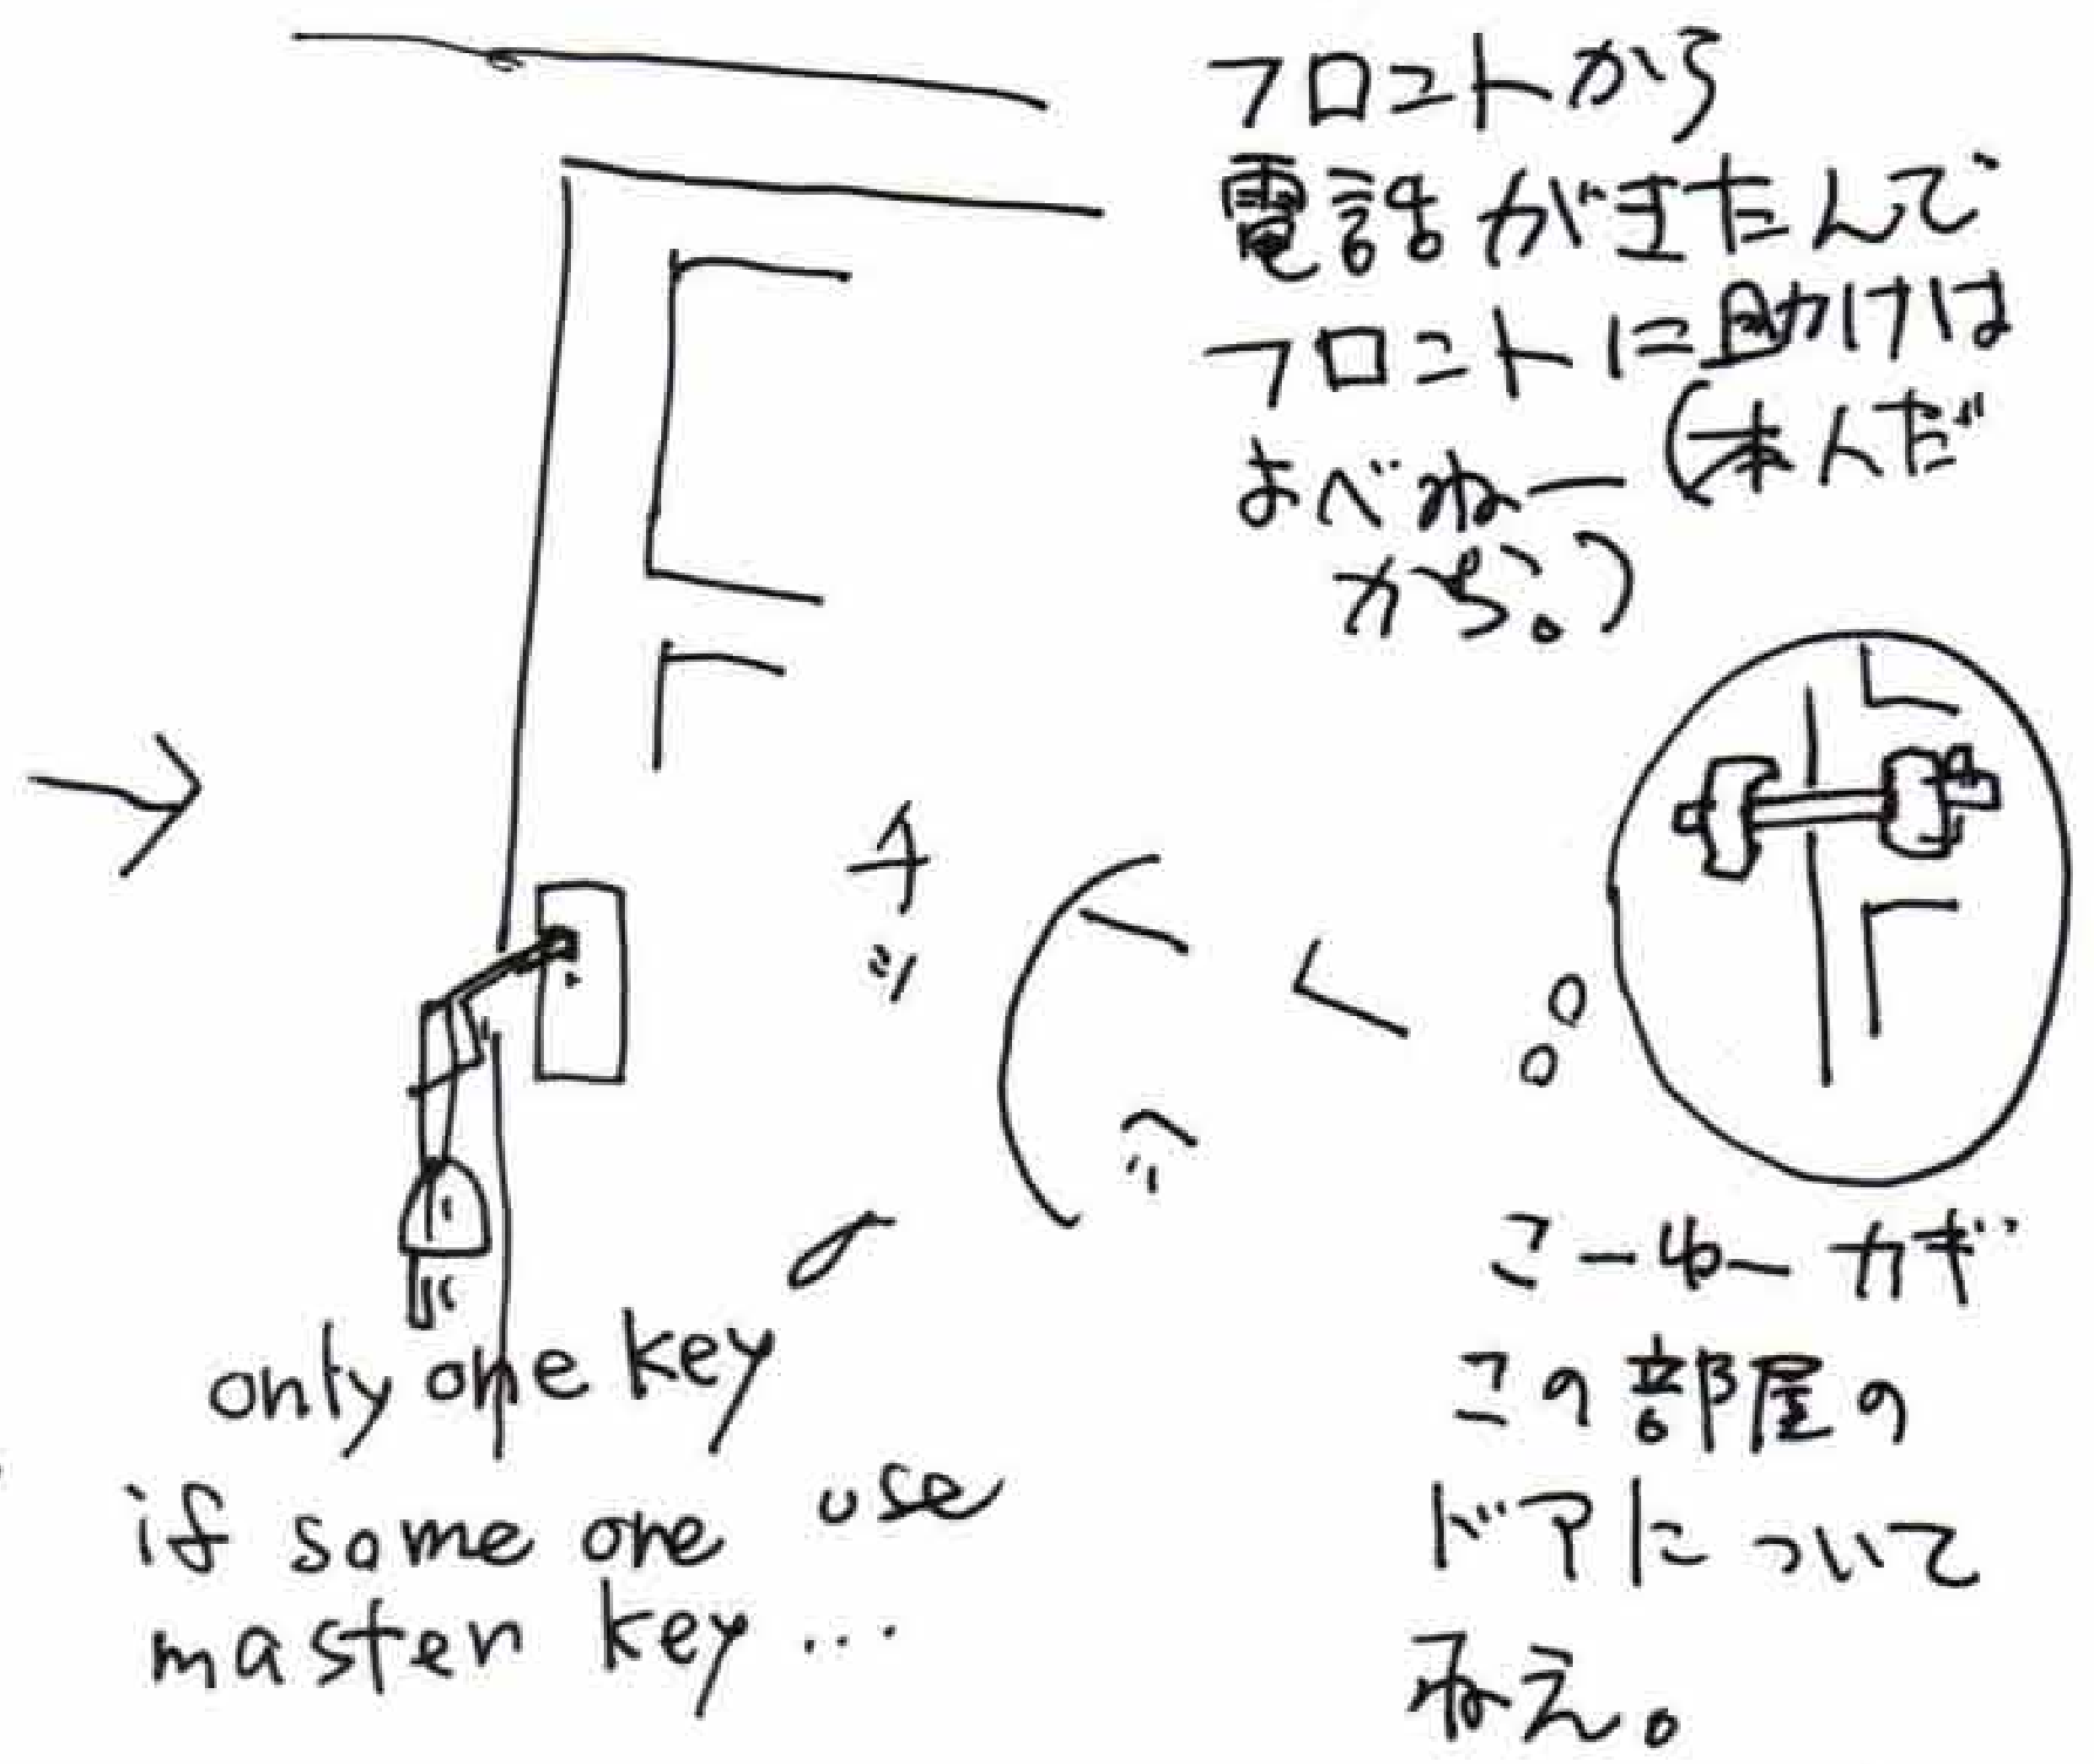 フロントから
電話がきたんで
フロントに助けは
よべねー(本人だ
から。)
チッ
こーゆーカギ
この部屋の
ドアについて
ねえ。
only one key
if some one use
master key...